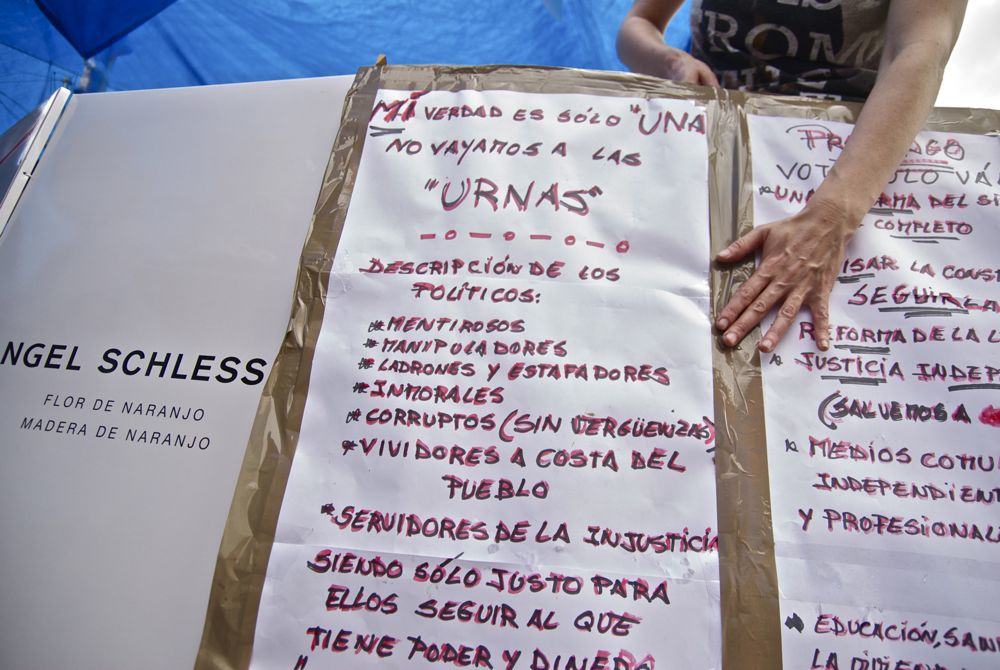 NGEL SCHLESS
FLOR DE NARANJO
MADERA DE NARANJO
MI VERDAD ES SÓLO "UNA
NO VAYAMOS A LAS
"URNAS"
DESCRIPCIÓN DE LOS
POLÍTICOS:
*MENTIROSOS
*MANIPULADORES
*LADRONES Y ESTAFADORES
*INMORALES
*CORRUPTOS (SIN VERGÜENZAS)
*VIVIDORES A COSTA DEL
PUEBLO
*SERVIDORES DE LA INJUSTICIA
SIENDO SÓLO JUSTO PARA
ELLOS SEGUIR AL QUE
TIENE PODER Y DINERO
COMPLETO
ISAR LA CONS
SEGUIR LA
REFORMA DE LA L
JUSTICIA INDEP
(SALVEMOS A
* MEDIOS COMU
INDEPENDIENT
Y PROFESIONAL
* EDUCACIÓN, SAN